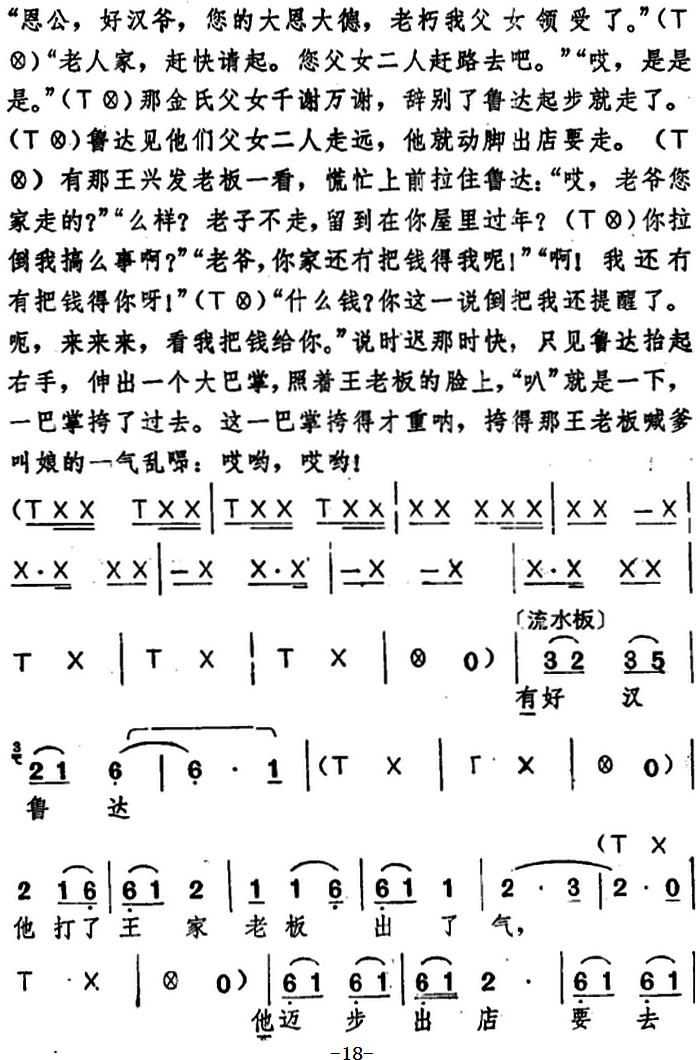 “恩公，好汉爷，您的大恩大德，老朽我父女领受了。”(T
⊗)“老人家，赶快请起。您父女二人赶路去吧。”“哎，是是
是。”(T ⊗)那金氏父女千谢万谢，辞别了鲁达起步就走了。
(T ⊗)鲁达见他们父女二人走远，他就动脚出店要走。(T
⊗) 有那王兴发老板一看，慌忙上前拉住鲁达：“哎，老爷您
家走的?”“么样? 老子不走，留到在你屋里过年? (T ⊗)你拉
倒我搞么事啊?”“老爷，你家还冇把钱得我呢!”“啊! 我还冇
有把钱得你呀!”(T ⊗)“什么钱?你这一说倒把我还提醒了。
呃，来来来，看我把钱给你。”说时迟那时快，只见鲁达抬起
右手，伸出一个大巴掌，照着王老板的脸上，“叭”就是一下，
一巴掌挎了过去。这一巴掌挎得才重呐，挎得那王老板喊爹
叫娘的一气乱嗥：哎哟，哎哟!
(T X X T X X | T X X T X X | X X X X X | X X – X |
X · X X X | – X X · X | – X – X | X · X X X |
T X | T X | T X | ⊗ 0) |
〔流水板〕
3 2 3 5 |
有好 汉
3 2 1 6 | 6 · 1 | (T X | T X | ⊗ 0) |
鲁 达
(T X
2 1 6 | 6 1 2 | 1 1 6 | 6 1 1 | 2 · 3 | 2 · 0 |
他 打了 王 家 老 板 出 了 气，
T X | ⊗ 0) | 6 1 6 1 | 6 1 2 · | 6 1 6 1 |
他迈 步 出 店 要 去
-18-